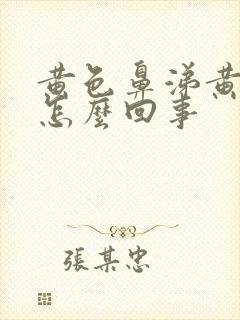 黄色鼻涕黄
怎麼回事
張某忠